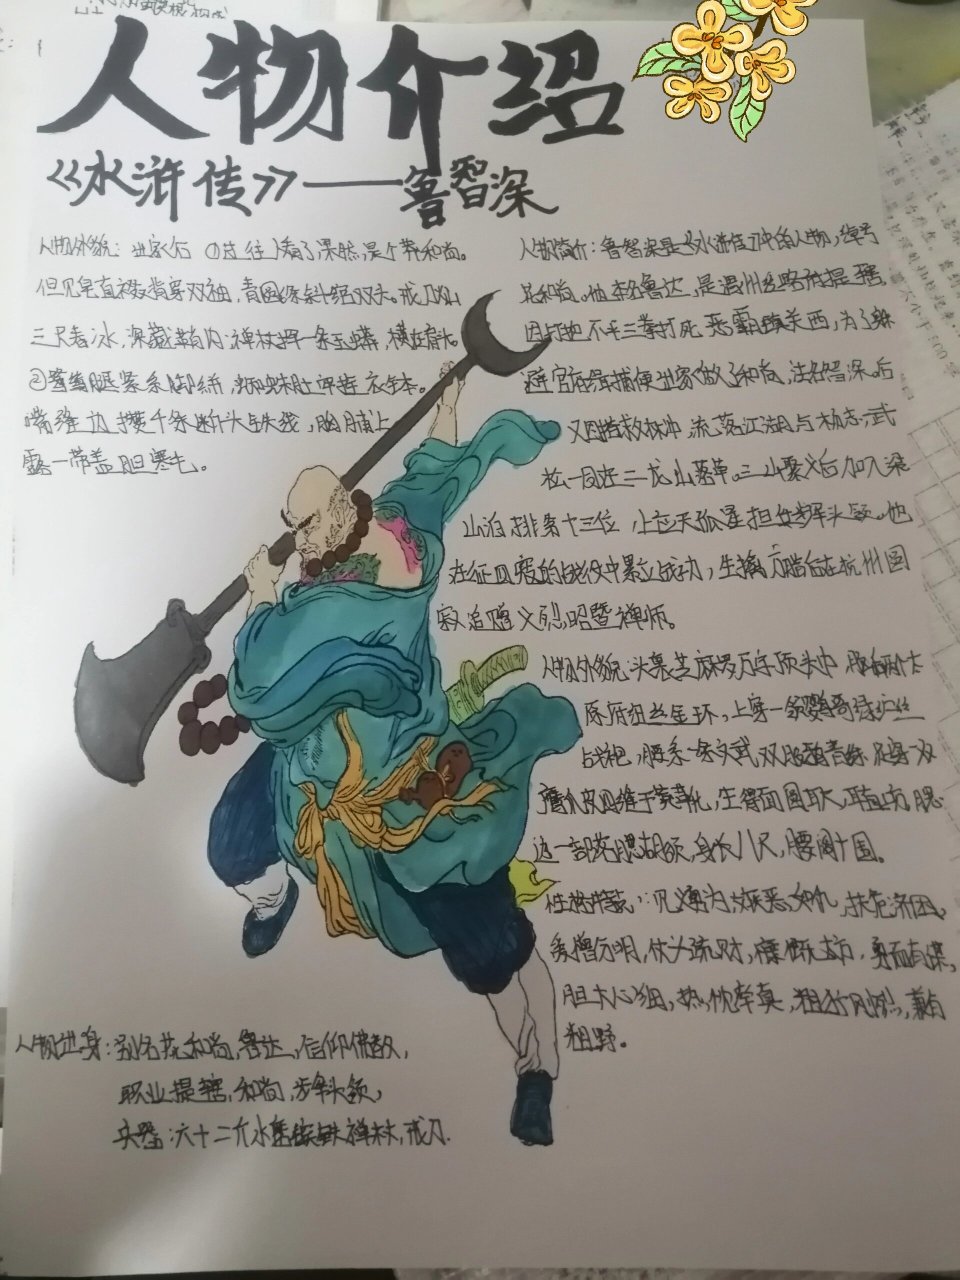 人物介绍
《水浒传》——鲁智深
人物外貌：出家后 ①鲁达往人看了果然是个莽和尚。
但见皂直裰背穿双袖，青圆绦斜绾双头。戒刀
三尺春冰，深藏鞘内；禅杖挥一条玉蟒，横在肩头。
②鹭鸶腿紧系脚絣，蜘蛛肚牢拴衣钵。
嘴缝边攒千条断头铁线，胸脯上
露一带盖胆寒毛。
人物简介：鲁智深是《水浒传》中的人物，绰号
花和尚。他本名鲁达，是渭州经略府提辖，
因打抱不平三拳打死恶霸镇关西，为了躲
避官府缉捕便出家做了和尚，法名智深。后
又因搭救林冲，流落江湖，与杨志、武
松一同在二龙山落草。三山聚义后加入梁
山泊，排第十三位，上应天孤星，担任步军头领。他
在征四寇的战役中累立战功，生擒方腊，后在杭州圆
寂，追赠义烈昭暨禅师。
人物外貌：头裹芝麻罗万字顶头巾，脑后两个太
原府纽丝金环，上穿一领鹦哥绿纻丝
战袍，腰系一条文武双股鸦青绦，足穿一双
鹰爪皮四缝干黄靴，生得面圆耳大，鼻直口方，腮
边一部络腮胡须，身长八尺，腰阔十围。
性格特点：见义勇为，嫉恶如仇，扶危济困，
爱憎分明，仗义疏财，慷慨大方，勇而有谋，
胆大心细，热忱率真，粗犷刚烈，兼有
粗野。
人物出身：别名花和尚，鲁达，信仰佛教，
职业提辖，和尚，步军头领，
兵器：六十二斤水磨镔铁禅杖，戒刀.